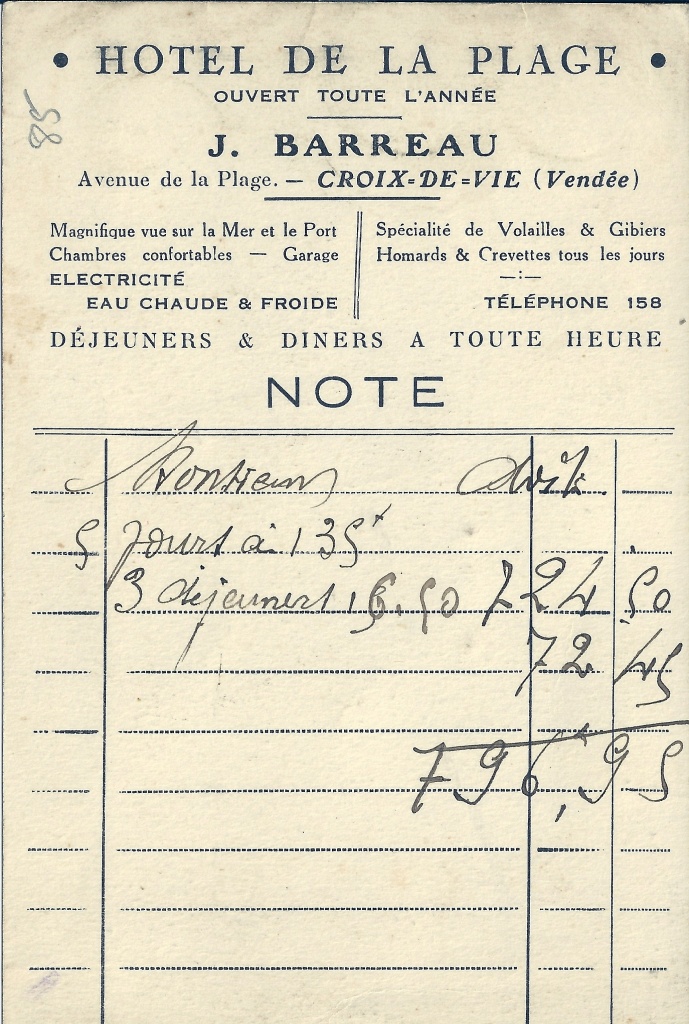 85
• HOTEL DE LA PLAGE •
OUVERT TOUTE L'ANNÉE
J. BARREAU
Avenue de la Plage. — CROIX-DE-VIE (Vendée)
Magnifique vue sur la Mer et le Port
Chambres confortables — Garage
ELECTRICITÉ
EAU CHAUDE & FROIDE
Spécialité de Volailles & Gibiers
Homards & Crevettes tous les jours
—:—
TÉLÉPHONE 158
DÉJEUNERS & DINERS A TOUTE HEURE
NOTE
Monsieur doit
5 jours à 135
3 déjeuners 16.50 724 50
72 45
796,95